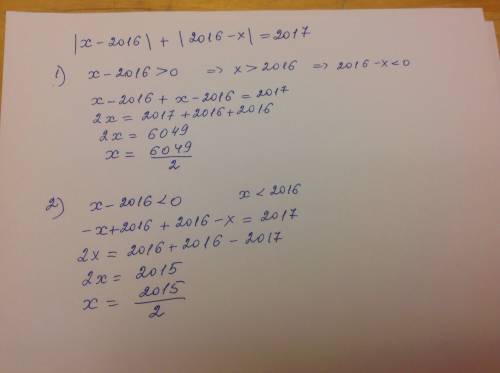 |x - 2016| + |2016 - x| = 2017
1) x - 2016 > 0 => x > 2016 => 2016 - x < 0
x - 2016 + x - 2016 = 2017
2x = 2017 + 2016 + 2016
2x = 6049
x = 6049/2
2) x - 2016 < 0 x < 2016
-x + 2016 + 2016 - x = 2017
2x = 2016 + 2016 - 2017
2x = 2015
x = 2015/2